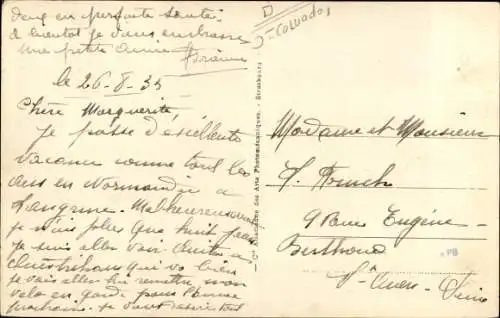 deux en parfaite santé.
à bientôt je vous embrasse
une petite amie
D
J = Calvados
le 26-8-35
Chère Marguerite,
je passe d'excellente
vacance comme tout les
ans en Normandie à
Langrune. Malheureusement
je n'ais plus que huit jours
je suis aller voir
qui va bien
je vais aller lui remettre mon
velo en garde pour l'année
prochaine. je vous
des Arts Photomécaniques - Strasbourg
Madame et Monsieur
9 Rue Eugène
Berthoud
St Ouen - Seine
PB